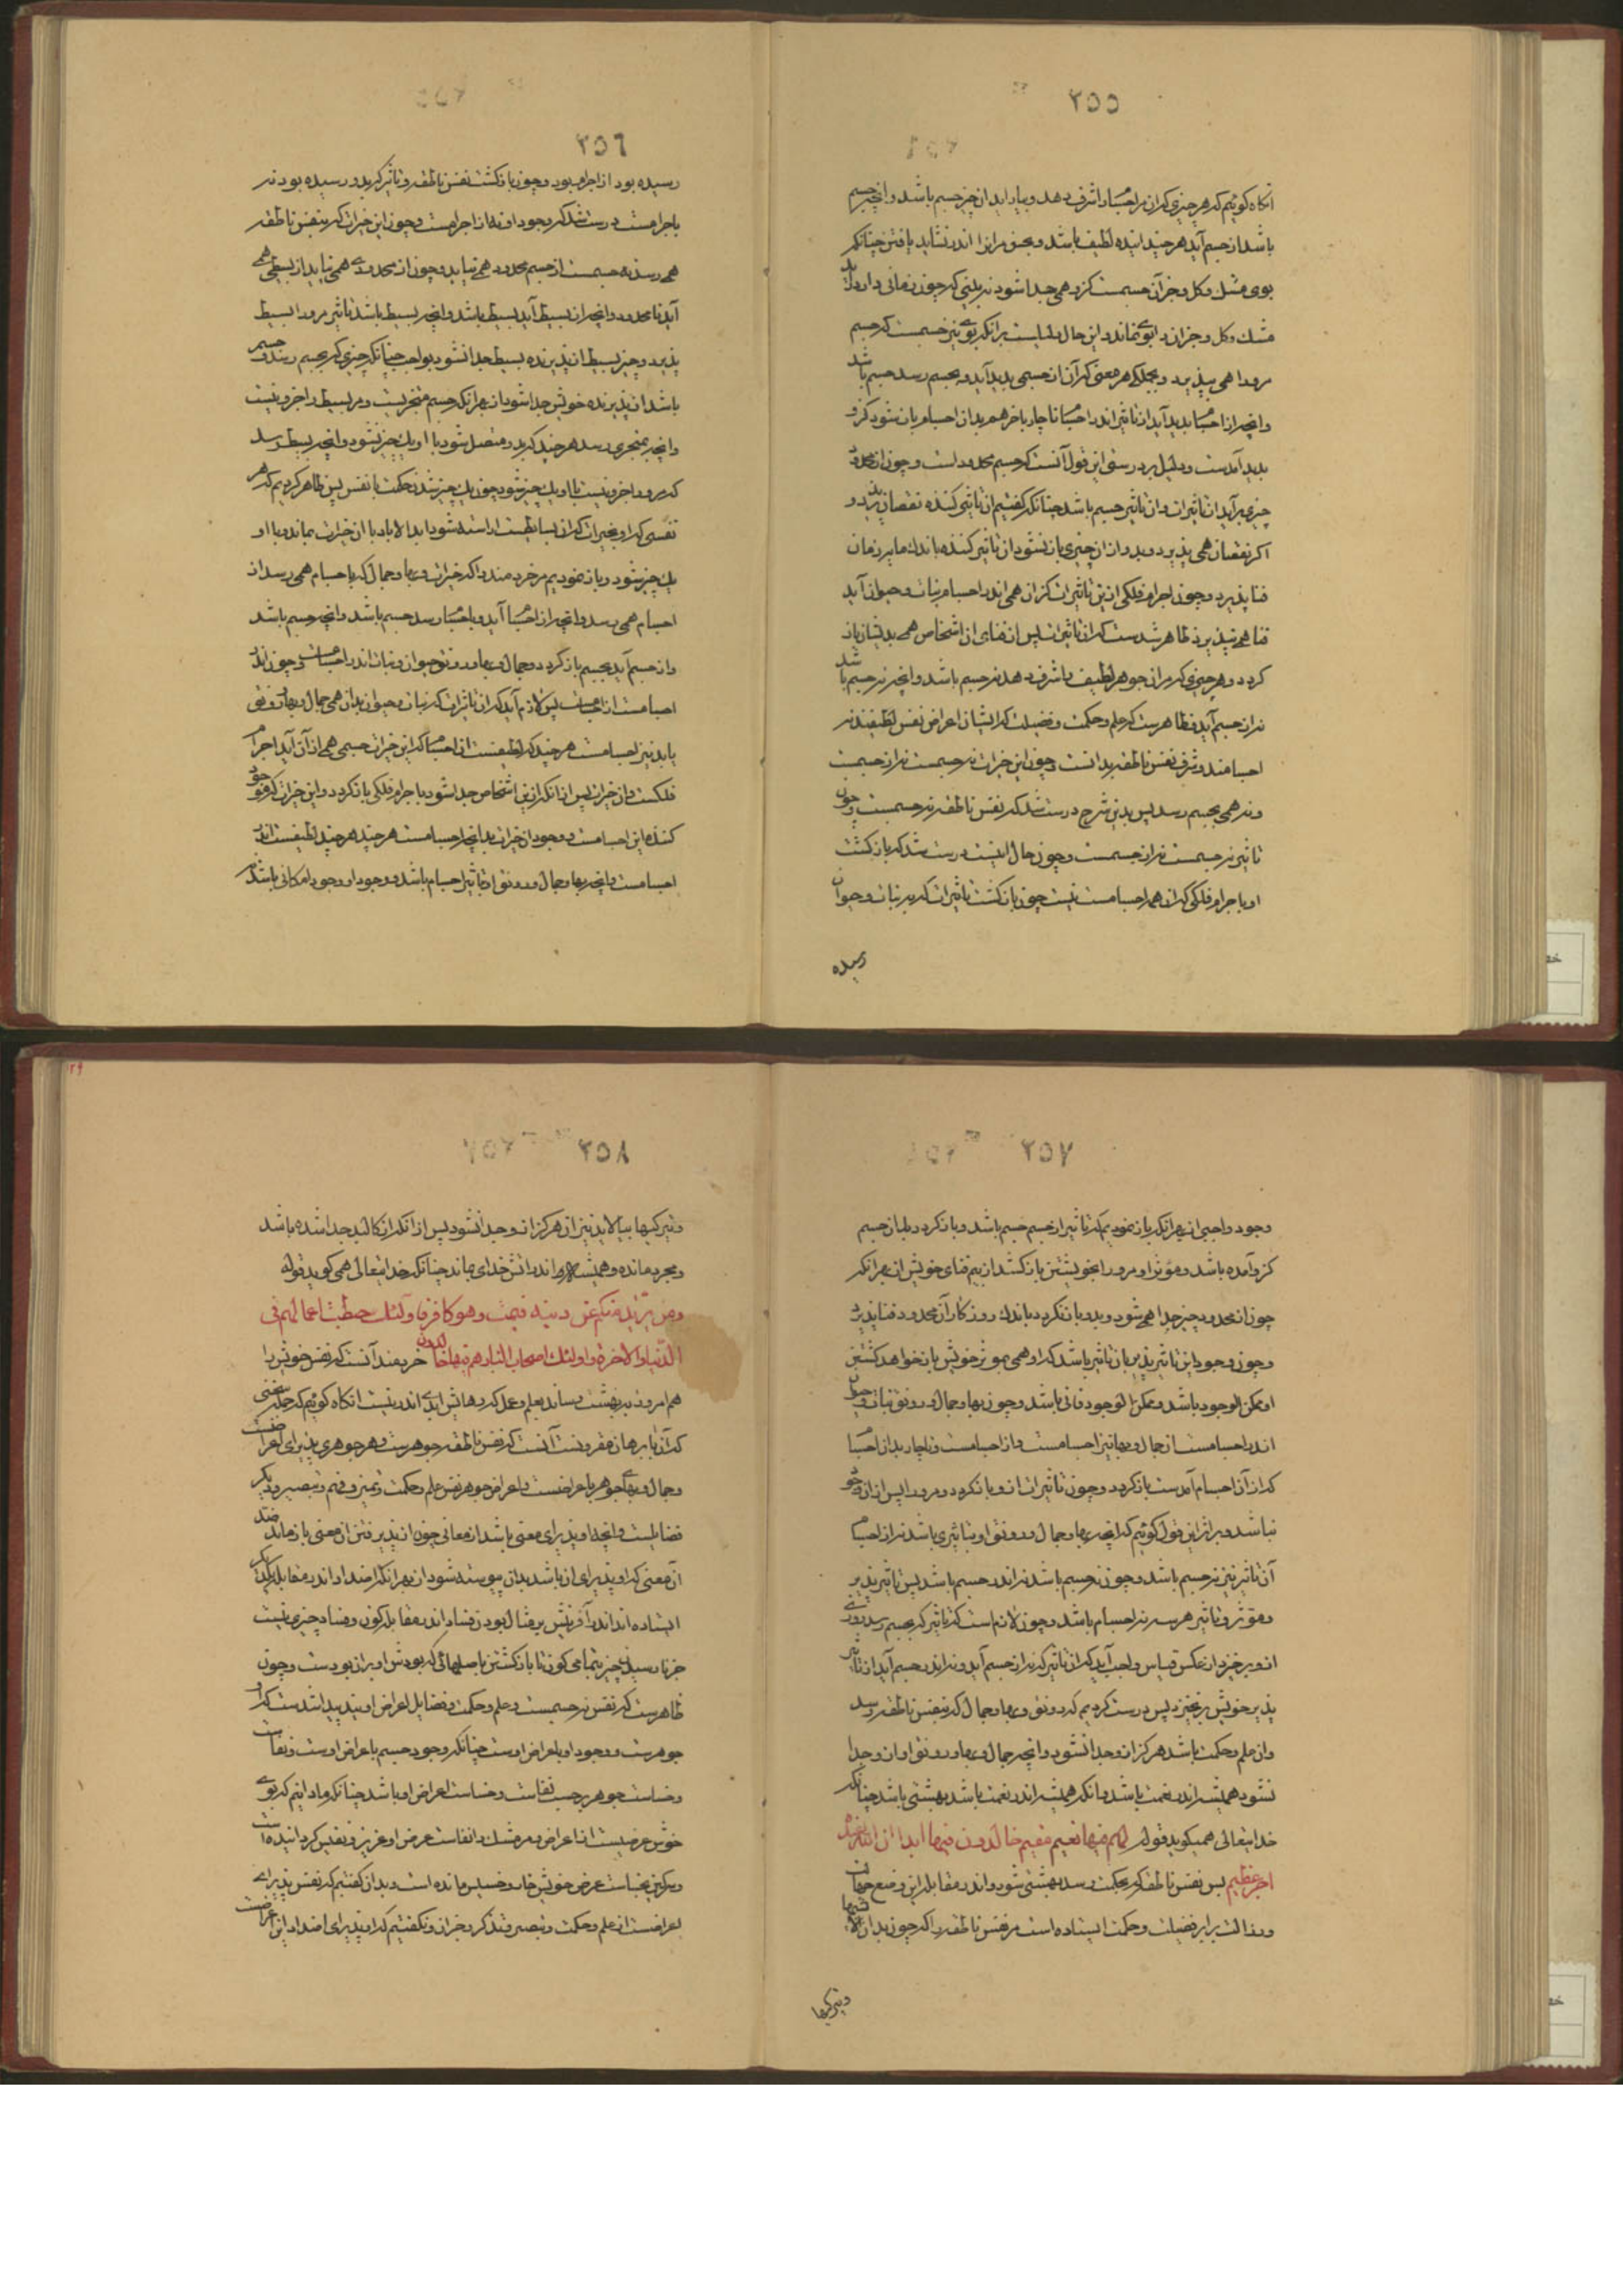 ٢٥٥
آنگاه گوئیم که هر چیزی که آن مر اجسام را شرف دهد و بیاراید آن چیز جسم باشد و آنچه جسم
باشد از جسم آید هر چند که لطیف باشد و بحس مر آنرا اندر نشاید یافتن چنانکه
بوی مشک و گل و جز آن جسمست کزو همی جدا شود نه بینی که چون زمانی دراز بر آید
مشک و گل و جز آن را بوی نماند و این حال دلیلست بر آنکه بوی نیز جسمست که جسم
مرورا همی بپذیرد و بجملگی هر معنی که آن از جسمی پدید آید و بجسم رسد جسم باشد
و آنچه از اجسام پدید آید از تاثیر اندر اجسام ناچار بآخر هم بدان اجسام باز شود کزو
پدید آمدست و دلیل بر درستی این قول آنست که جسم محدود است و چون از محدود
چیزی بر آید از تاثیرات و آن تاثیر جسم باشد چنانکه گفتیم آن تاثیر کننده نقصان پذیرد و
اگر نقصان همی پذیرد و بدو از آن چیزی باز نشود آن تاثیر کننده باندک مایه زمان
فنا پذیرد و چون اجرام فلکی ازین تاثیرات کز آن همی اندر اجسام نبات و حیوان آید
فنا همی نپذیرد ظاهر شدست که آن تاثیرات پس از فنای آن اشخاص همی بدیشان باز
گردد و هر چیزی که مر آن جوهر لطیف را شرف دهد نه جسم باشد و آنچه نه جسم باشد
نه از جسم آید و ظاهرست که علم و حکمت و فضیلت که ایشان اعراض نفس لطیفند نه
اجسامند و شرف نفس ناطقه بدانست و چون این خیرات نه جسمست نه از جسمست
و نه همی بجسم رسد پس بدین شرح درست شد که نفس ناطقه نه جسمست و چون
تاثیر نه جسمست نه از جسمست و چون حال اینست درست شد که بازگشت
او باجرام فلکی که آن همه اجسامست نیست چون بازگشت تاثیرات که بر نبات و حیوان
رسیده
٢٥٦
رسیده بود از اجرام بود و چون بازگشت نفس ناطقه و تاثیر که بدو رسیده بود نه
باجرامست درست شد که وجود او نه از اجرامست و چون این خیرات که بنفس ناطقه
همی رسد نه جسمست از جسم محدود همی نیاید و چون از محدودی همی نیاید از بسیطی همی
آید نامحدود و آنچه از بسیط آید بسیط باشد و آنچه بسیط باشد تاثیر مرورا بسیط
پذیرد و چیز بسیط از پذیرنده بسیط جدا نشود بواجب چنانکه چیزی که بجسم رسد و جسم
باشد از پذیرنده خویش جدا شود از بهر آنکه جسم متجزیست و مر بسیط را جزو نیست
و آنچه بمتجزی رسد هر چند که بدو متصل شود با او یک چیز نشود و آنچه ببسیط رسد
که مرورا جزو نیست با او یک چیز شود چون یک چیز شدن حکمت با نفس پس ظاهر کردیم که هر
نفسی که او بخیراتی که از بسایطست آراسته شود ابد الاباد با آن خیرات بماند و با او
یک چیز شود و باز نمودیم مر خردمند را که خیرات و بها و جمال که باجسام همی رسد از
اجسام همی رسد و آنچه از اجسام آید و باجسام رسد جسم باشد و آنچه جسم باشد
و از جسم آید بجسم باز گردد و جمال و بها و رونق حیوان و نبات اندر اجسامست و چون اندر
اجسامست از اجسامست پس لازم آید که آن تاثیرات که نبات و حیوان بدان همی جمال و بها و رونق
یابد نیز اجسامست هر چند که لطیفست از اجسام که این خیرات جسمی همی از آن آید اجرام
فلکست و آن خیرات پس از آنکه ازین اشخاص جدا شود باجرام فلکی باز گردد و این خیرات که وجود
کننده این اجسامست و وجود آن خیرات بدانچه اجسامست هر چند هر چند لطیفست اندر
اجسامست و آنچه بها و جمال و رونق او تاثیر اجسام باشد و وجود او وجود امکانی باشد نه
٢٥٧
وجود واجبی از بهر آنکه باز نمودیم که تاثیر از جسم جسم باشد و باز گردد بدان جسم
کزو آمده باشد و مؤثر او مرورا بخویشتن باز کشد از بیم فنای خویش از بهر آنکه
چون از محدود چیز جدا همی شود و بدو باز نگردد باندک روزگار آن محدود فنا پذیرد
و چون وجود این تاثیر پذیر بآن تاثیر باشد که او همی بموثر خویش باز خواهد گشتن
او ممکن الوجود باشد و ممکن الوجود فانی باشد و چون بها و جمال و رونق نبات و حیوان
اندر اجسامست از جمال و بها نیز اجسامست و از اجسامست و ناچار بدان اجسام
که از آن اجسام آمدست باز گردد و چون تاثیرات ازو باز گردد و مرورا پس از آن وجود
نباشد و بر اثر این قول گوئیم که آنچه بها و جمال و رونق او بتاثیری باشد نه از اجسام
آن تاثیر نیز نه جسم باشد و چون نه جسم باشد نه اندر جسم باشد پس تاثیر پذیر
و مؤثر و تاثیر هر سه نه اجسام باشد و چون لازم است که تاثیر که بجسم رسد روزی
ازو بر خیزد از عکس قیاس واجب آید که آن تاثیر که نه از جسم آید و نه اندر جسم آید از تاثیر
پذیر خویش بر نخیزد پس درست کردیم که رونق و بها و جمال که بنفس ناطقه رسد
و آن علم و حکمت باشد هرگز ازو جدا نشود و آنچه جمال و بها و رونق او ازو جدا
نشود همیشه اندر نعمت باشد و آنکه همیشه اندر نعمت باشد بهشتی باشد چنانکه
خدایتعالی همیگوید قوله لهم فیها نعیم مقیم خالدون فیها ابدا ان الله عنده
اجر عظیم پس نفس ناطقه که بحکمت رسد بهشتی شود و اندر مقابله این وضع جهالت
و رذالت برابر فضیلت و حکمت ایستاده است مر نفس ناطقه را که چون بدان زشتیها
و تیرگیها
٢٥٨
و تیرگیها بیالاید نیز آن هرگز ازو جدا نشود پس از آنکه از کالبد جدا شده باشد
و مجرد مانده و همیشه اندر آتش خدای بماند چنانکه خدایتعالی همی گوید قوله
ومن یرتدد منکم عن دینه فیمت وهو کافر فاولئک حبطت اعمالهم فی
الدنیا والآخرة واولئک اصحاب النار هم فیها خالدون خردمند آنست که نفس خویش را
هم امروز به بهشت رساند بعلم و عمل که رهایش ابدی اندرینست آنگاه گوئیم که جمله سخنی
که آن با برهان مقرونست آنست که نفس ناطقه جوهرست و هر جوهری پذیرای اعراضست
و جمال و بهای جوهر باعراضست و اعراض جوهر نفس علم و حکمت و تمیز و فهم و تبصیر و دیگر
فضایلست و آنچه او پذیرای معنی باشد از معانی چون از پذیرفتن آن معنی باز ماند ضد
آن معنی که او پذیرای آن باشد بدان پیوسته شود از بهر آنکه اضداد اندر مقابله یکدیگر
ایستاده اند اندر آفرینش بر مثال بودن فساد اندر مقابله کون و فساد چیزی نیست
جز نارسیدن چیز بتمامی کون تا بازگشتن باصلهائی که بودش او بران بودست و چون
ظاهرست که نفس نه جسمست و علم و حکمت و فضایل اعراض اویند پیدا شدست که او
جوهرست و وجود او باعراض اوست چنانکه وجود جسم باعراض اوست و نفاست
و خساست جوهر بر حسب نفاست و خساست اعراض او باشد چنانکه ما دانیم که بوی
خوش عرضیست از اعراض و مر مشک را نفاست عرض او عزیز و نفیس گردانیده است
و سرگین بخساست عرض خویش خار و خسیس مانده است و بدان گفتیم که نفس پذیرای
اعراضست از علم و حکمت و تبصیر و تذکر و جز آن و نگفتیم که او پذیرای اضداد این اعراضست